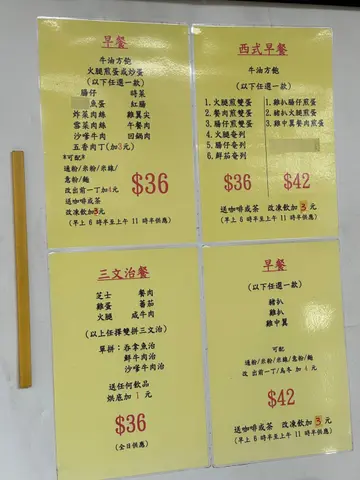 早餐
牛油方飽
火腿煎蛋或炒蛋
(以下任選一款)
腸仔 時菜
魚蛋 紅腸
炸菜肉絲 雞翼尖
雪菜肉絲 午餐肉
沙嗲牛肉 回鍋肉
五香肉丁(加3元)
*可配*
通粉/米粉/米線/
意粉/麵
改出前一丁加4元
送咖啡或茶
改凍飲加3元
$36
(早上 6 時半至上午 11 時半供應)
西式早餐
牛油方飽
(以下任選一款)
1.火腿煎雙蛋
2.餐肉煎雙蛋
3.腸仔煎雙蛋
4.火腿奄列
5.腸仔奄列
6.鮮茄奄列
$36
1.雞扒腸仔煎蛋
2.豬扒火腿煎蛋
3.雞中翼餐肉煎蛋
$42
送咖啡或茶 改凍飲加 3 元
(早上 6 時半至上午 11 時半供應)
三文治餐
芝士 餐肉
雞蛋 蕃茄
火腿 咸牛肉
(以上任擇雙拼三文治)
單拼:吞拿魚治
鮮牛肉治
沙嗲牛肉治
送任何飲品
烘底加 1 元
$36
(全日供應)
早餐
(以下任選一款)
豬扒
雞扒
雞中翼
可配
通粉/米粉/米線/意粉/麵
改 出前一丁/烏冬 加 4 元
$42
送咖啡或茶 改凍飲加 3 元
(早上 6 時半至上午 11 時半供應)